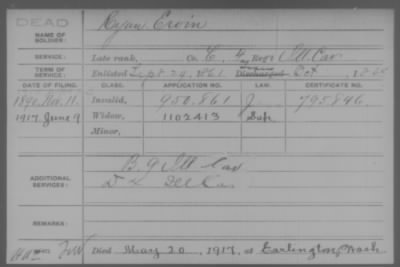 DEAD
NAME OF SOLDIER: Ervin
SERVICE: Late rank, Co. C, 4 Reg't Ill Cav
TERM OF SERVICE: Enlisted Sept 29, 1861 Discharged Oct , 1865
DATE OF FILING. CLASS. APPLICATION NO. LAW. CERTIFICATE NO.
1890, Nov. 11. Invalid, 950.861 J 795846.
1917, June 9 Widow, 1102413
Minor,
ADDITIONAL SERVICES: B 9 Ill Cav
REMARKS:
Died May 20, 1917, at Earlington, Wash